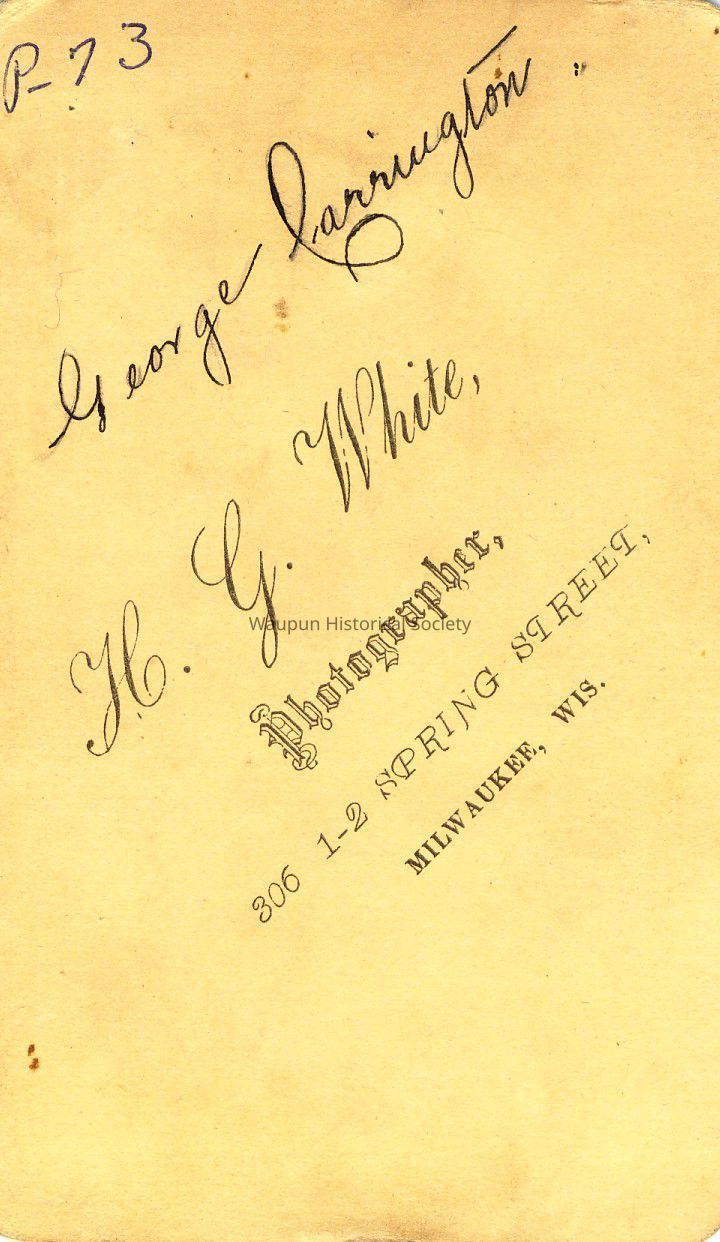 P-73
George Carrington
H. G. White,
Photographer,
306 1-2 SPRING STREET,
MILWAUKEE, WIS.
Waupun Historical Society